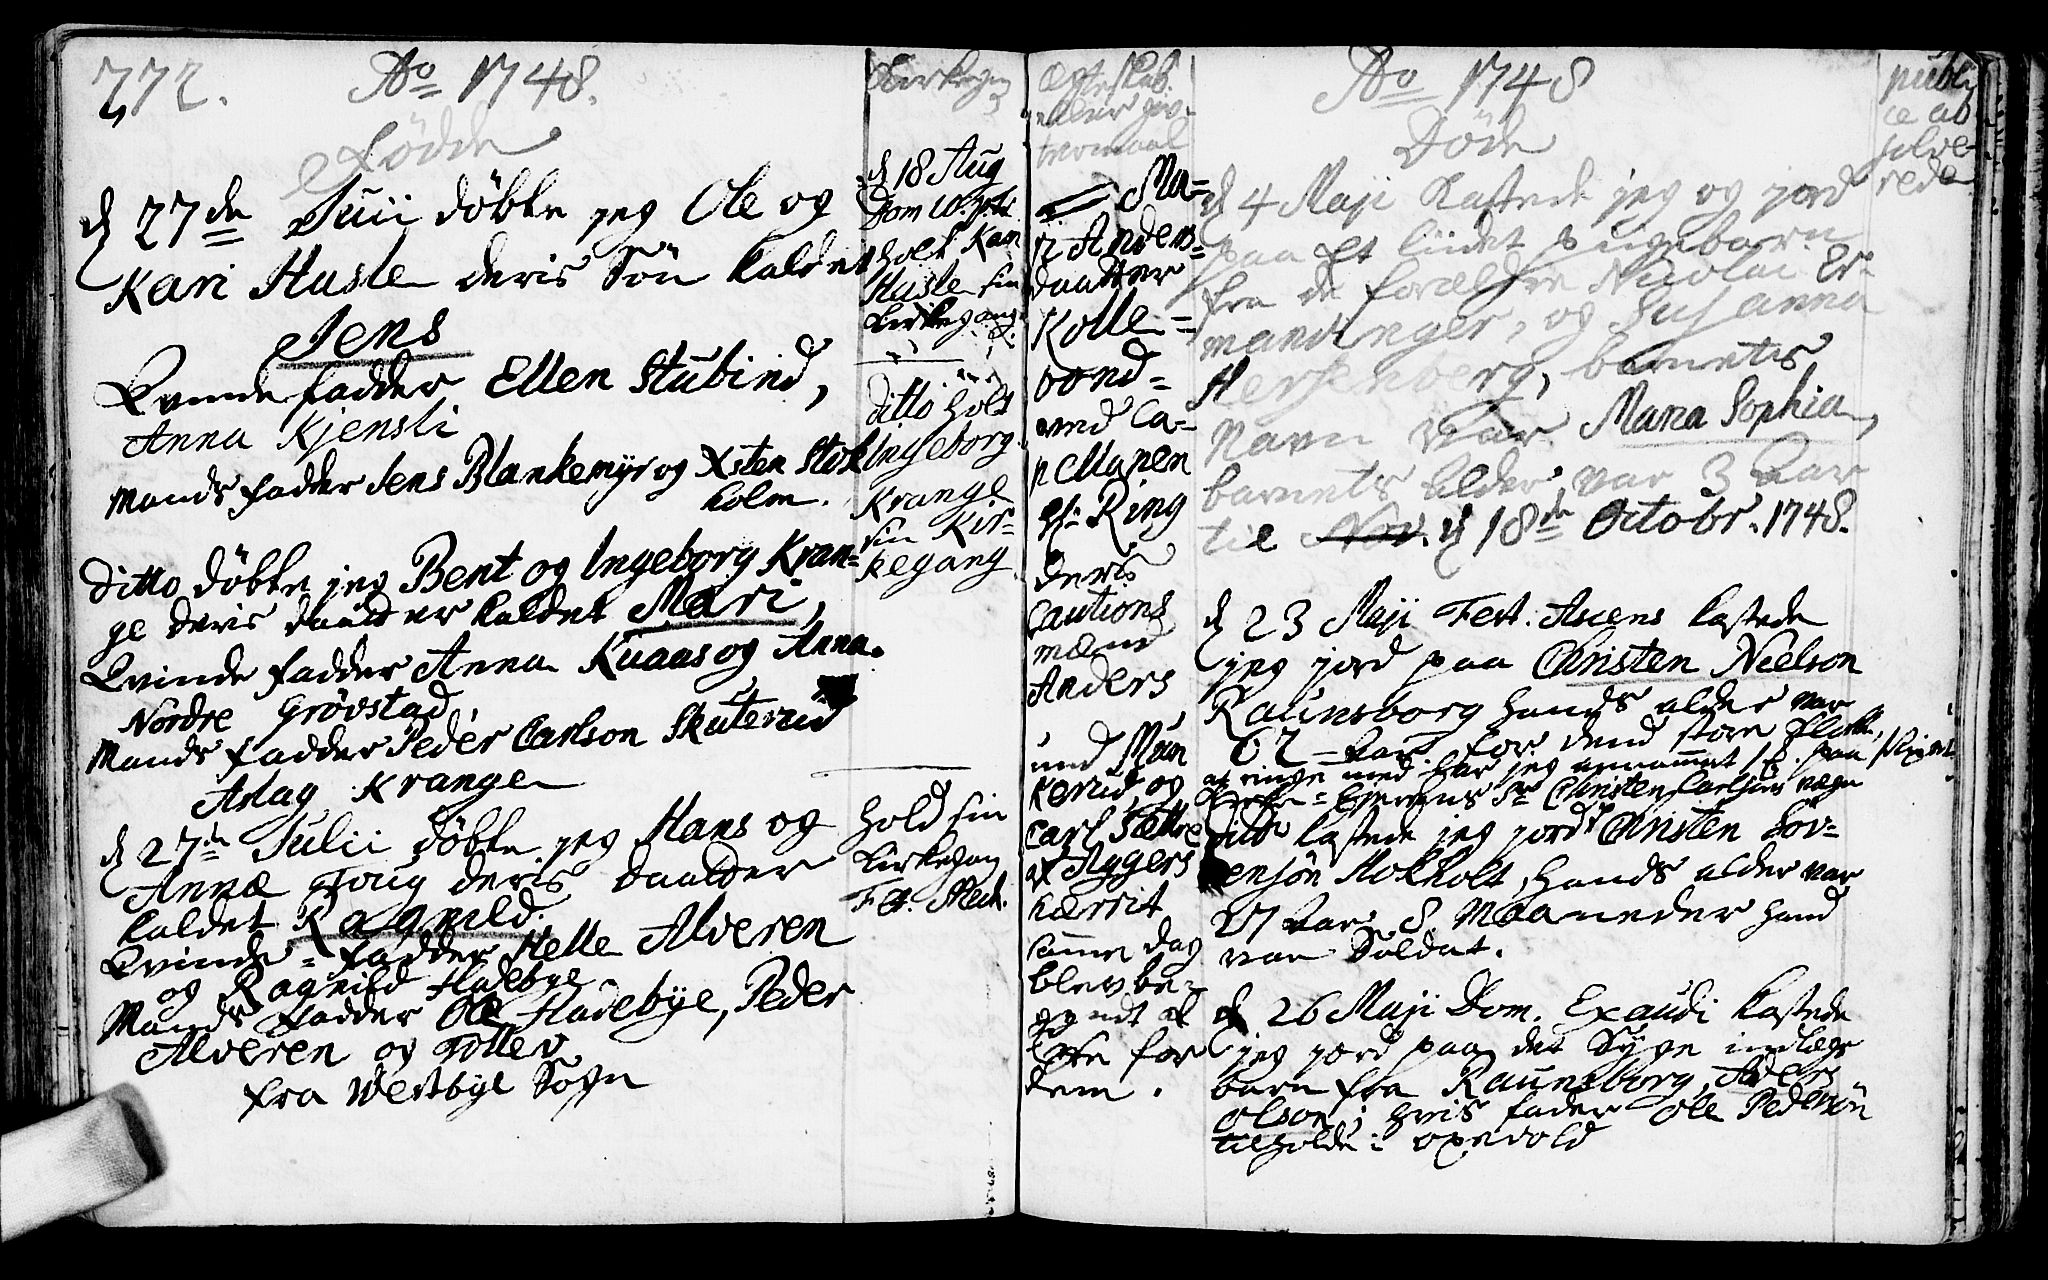 772. Ao 1748.
Födde
d 27de Juii döbte jeg Ole og
Kari Husle deris Sön kaldet
Jens
Qvinde fadder Ellen Stubind,
Anna Kjensli
Mands fadder Jens Blankemyr og Xsten Stok
holm.
Ditto döbte jeg Bent og Ingeborg Kran=
ge deris daatter kaldet Mari,
Qvinde fadder Anna Kuaas og Anna
Nordre Grövstad,
Mands fadder Peder Carlson Skuterud
Aslag Krange
d 27de Julii döbte jeg Hans og
Annæ Foug deris daatter
kaldet Ragnild.
Qvinde=fadder Helle Alveren
og Ragnild Hadebye
Mands fadder Ole Hadebye, Peder
Alveren og Tollev
fra Westbye Sogn
Kirkegang
d 18 Aug
Dom 10. p. tr.
holt Kari
Husle sin
Kirkegang
Ditto holt
Ingeborg
Krange
sin Kir=
kegang
hold sin
Kirkegang
Fest. Mich.
Ægteskab
eller
trovemaal
Ma=
ri Anders=
daatter
Kolle=
bond=
ved Ca=
pellanen
Hr Ring
deris
Cautions
mænd
Anders
und Mun
kerud og
Carl Sætre
af Aggers
herrit
samme dag
blev be=
gyndt at
lyse for
dem.
Ao 1748
Döde
d 4 Maji kastede jeg og jord
paa et liidet pigebarn
fra de forældre Nicolai Er=
mandinger, og Susanna
Hersenberg, barnets
Navn var Maria Sophia,
barnets alder var 3 Aar
til Nov. d 18de Octobr. 1748.
d 23 Maji Fest. Ascens kastede
jeg jord paa Christen Neelson
Raunsborg hands alder var
62 Aar. for dend store Klokke
at ringe med har jeg annammet paa
Kirke=Ejerens Sr Christen Carlsens vegne
Ditto kastede jeg jord Christen Lov=
ensön Hokholt, hands alder var
27 Aar 8 Maaneder hand
var Soldat.
d 26 Maji Dom. Exaudi kastede
jeg jord paa det Syge indlægs
barn fra Raunsborg, Anders
Olson, hvis fader Ole Pedersön
tilholdt i Oxevold
publi
ce ab
solve=
rede